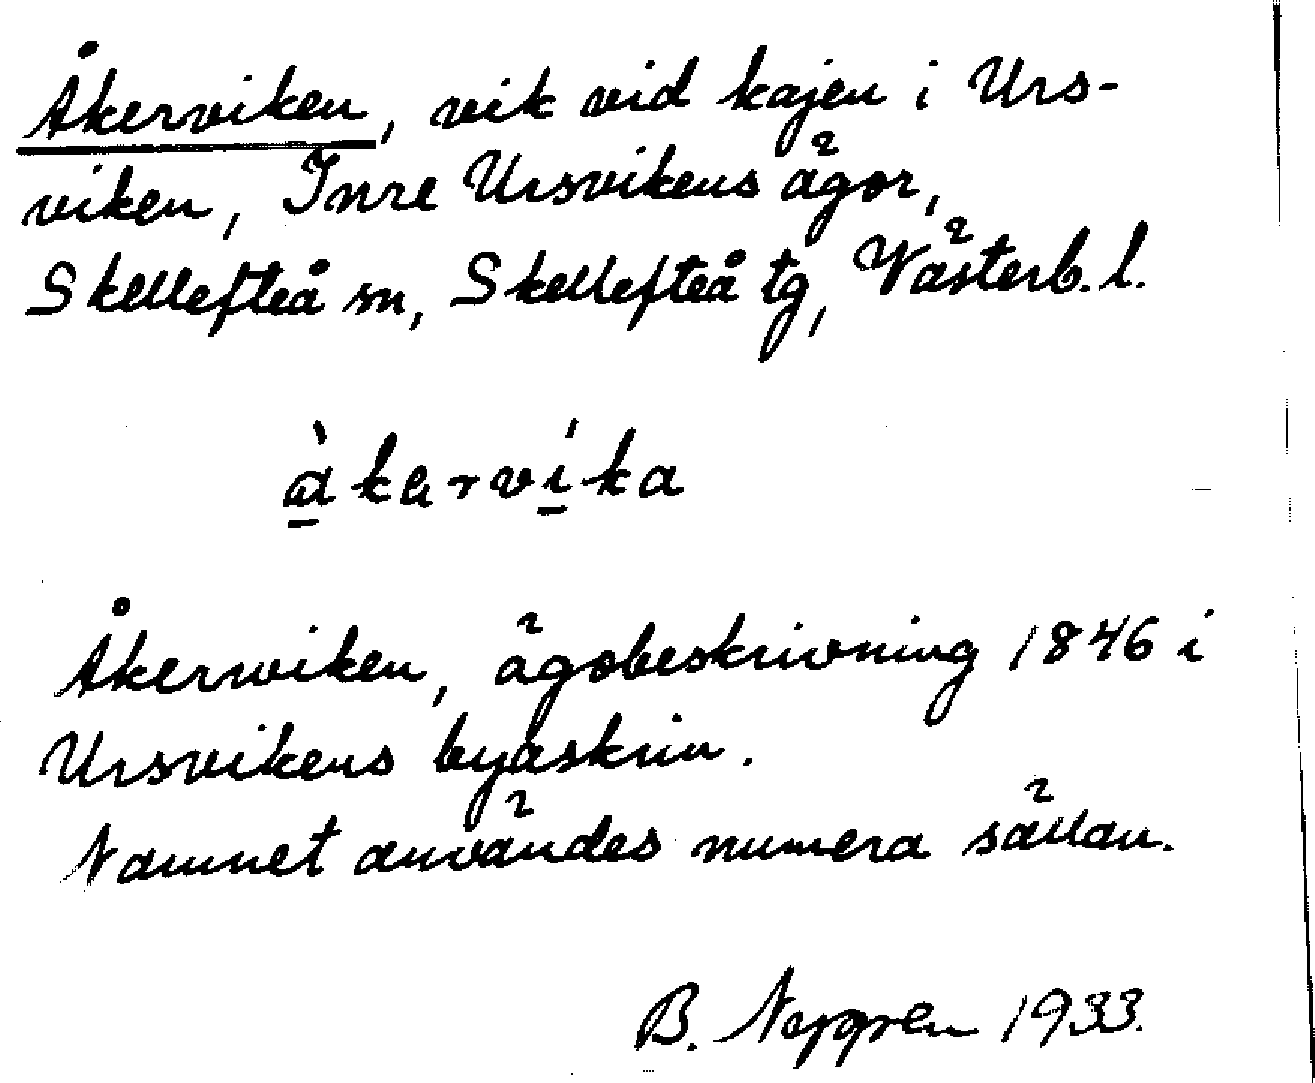 Åkerviken, vik vid kajen i Urs-
viken, Inre Ursvikens ägor,
Skellefteå sn, Skellefteå tg, Västerb. l.
Åkerwiken, ägobeskrivning 1846 i
Ursvikens byaskrin.
Namnet användes numera sällan.
B. 1933.